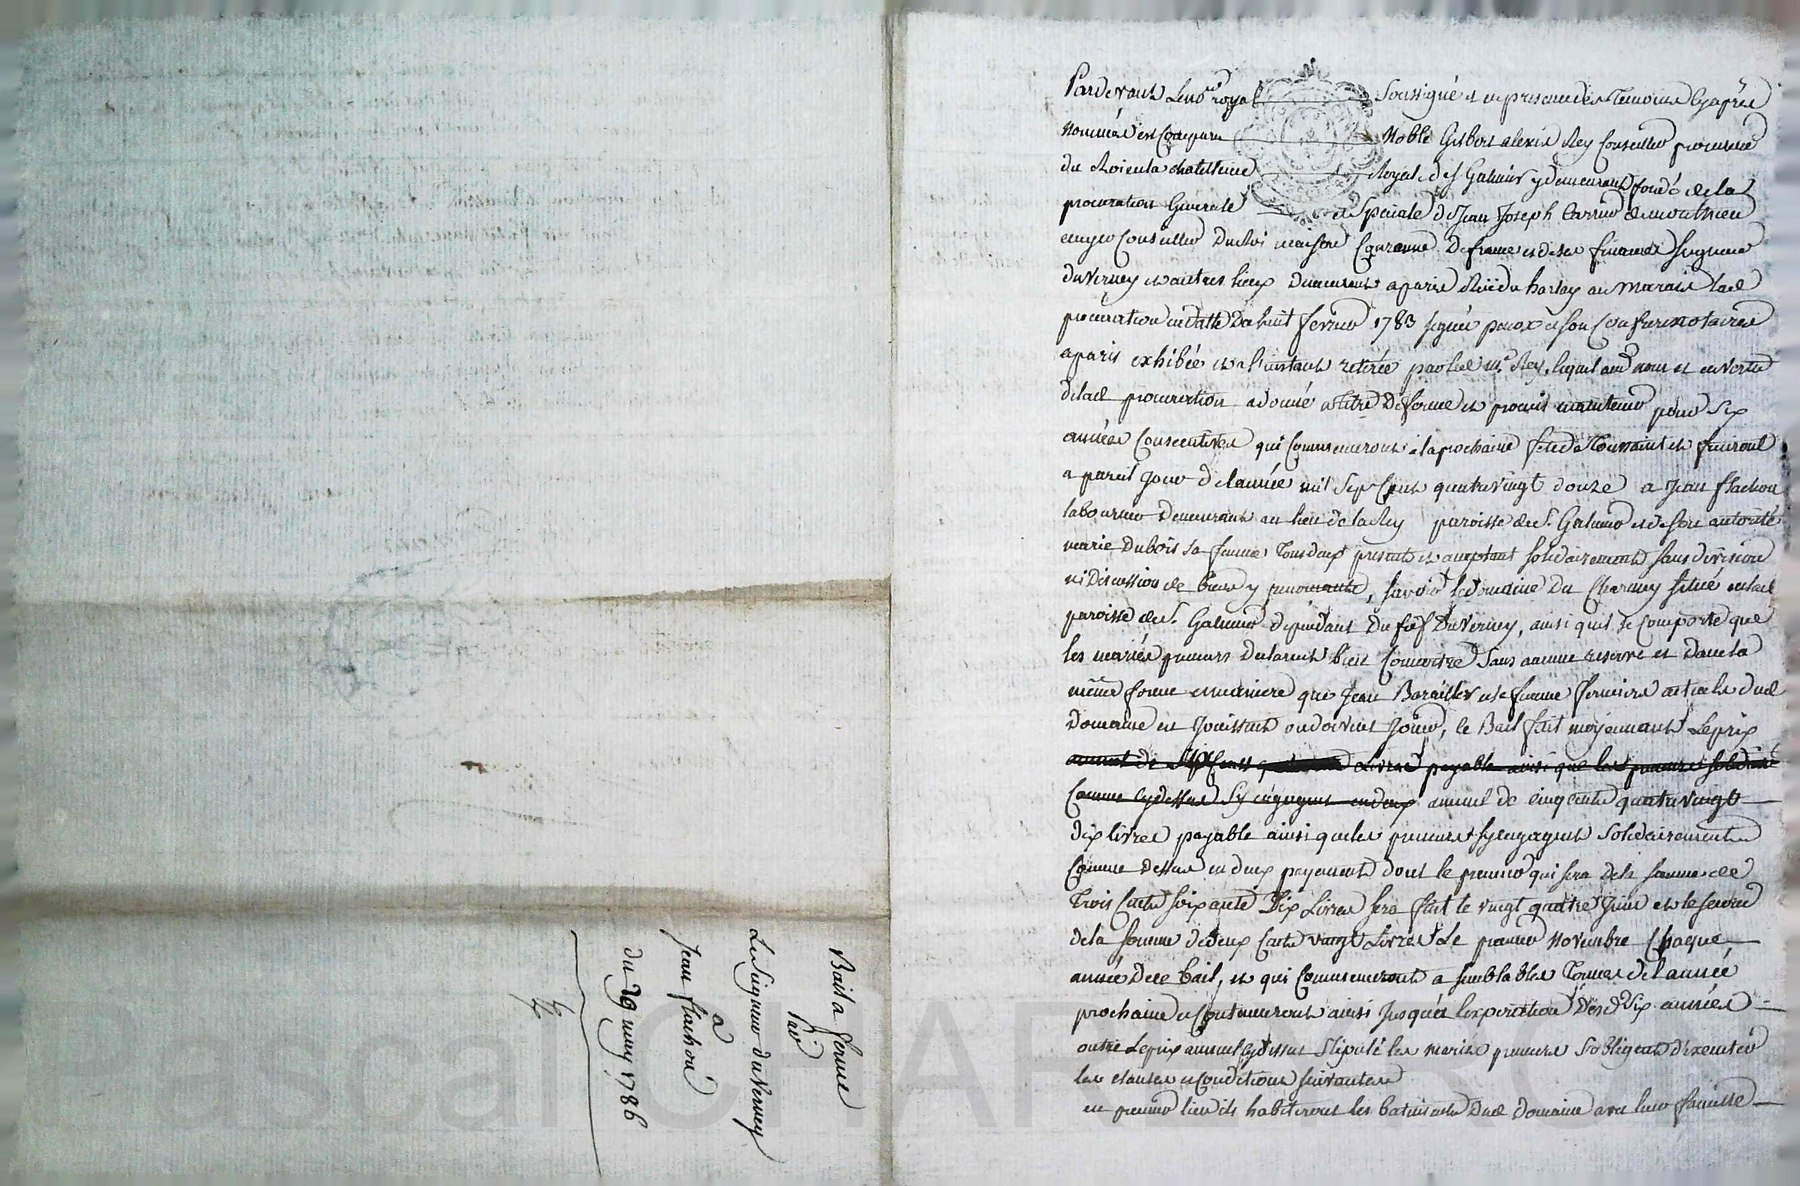 Pardevant Le no.re royal Soussigné et en presence des Temoins Cyaprès
Nommés est Comparu Noble Gilbert alexis Rey Conseiller procureur
du Roi en la chatellenie Royale de S.t Galmier y demeurant fondé de la
procuration Generale et Speciale de Jean Joseph Carrier de montrieu
ecuyer Conseiller Du Roi maison Couronne De france et de ses finances Seigneur
du Verney et autres lieux Demeurant a paris Rüe du harlay au marais lad.
procuration en datte Du huit fevrier 1783 signée paux et son Confrere notaires
a paris exhibée et a l'instant retirée par led. m.e Rey, lequel aud. nom et en vertu
de lad. procuration a donné a titre De ferme et promis maintenir pour Six
années Consecutives qui Commenceront a la prochaine fete de Toussaint et finiront
a pareil Jour de l'année mil Sept Cent quatre vingt douze a Jean flachon
laboureur Demeurant au lieu de la Rey paroisse de S.t Galmier et de son autorité
marie Dubois sa femme Tous deux presents et acceptant solidairement sans division
ni Discussion de biens y renonçants, savoir le Domaine Du Charney situé en lad.
paroisse de S.t Galmier dependant Du fief Du Verney, ainsi quil se Comporte que
les mariés preneurs declarent bien Connoitre Sans aucune reserve et Dans la
même forme et maniere que Jean Barailler et sa femme fermiers actuels Dud.
Domaine en Jouissent ou doivent Jouir, le Bail fait moyennant Le prix
annuel de Cent Livres payable ainsi que les preneurs solidaires
Comme cydessus S'y engagent en deux annuel de cinq cents quatre vingt
dix livres payable ainsi que les preneurs s'y engagent Solidairement
Comme Dessus en deux payements dont le premier qui sera De la somme de
Trois Cents soixante Dix Livres sera fait le vingt quatre Juin et le second
de la somme de deux Cents vingt Livres Le premier Novembre Chaque
année De ce bail, et qui Commenceront a semblables Termes de l'année
prochaine et Continueront ainsi Jusqu'à l'expiration Desd. Six années
outre Le prix annuel Cydessus Stipulé les mariés preneurs S'obligent d'executer
les clauses et Conditions suivantes
en premier lieu ils habiteront les batiments Dud. domaine avec leur famille
Bail a ferme
Par
Le Seigneur du Verney
a
Jean flachon
du 29 may 1786
Pascal CHARETRON